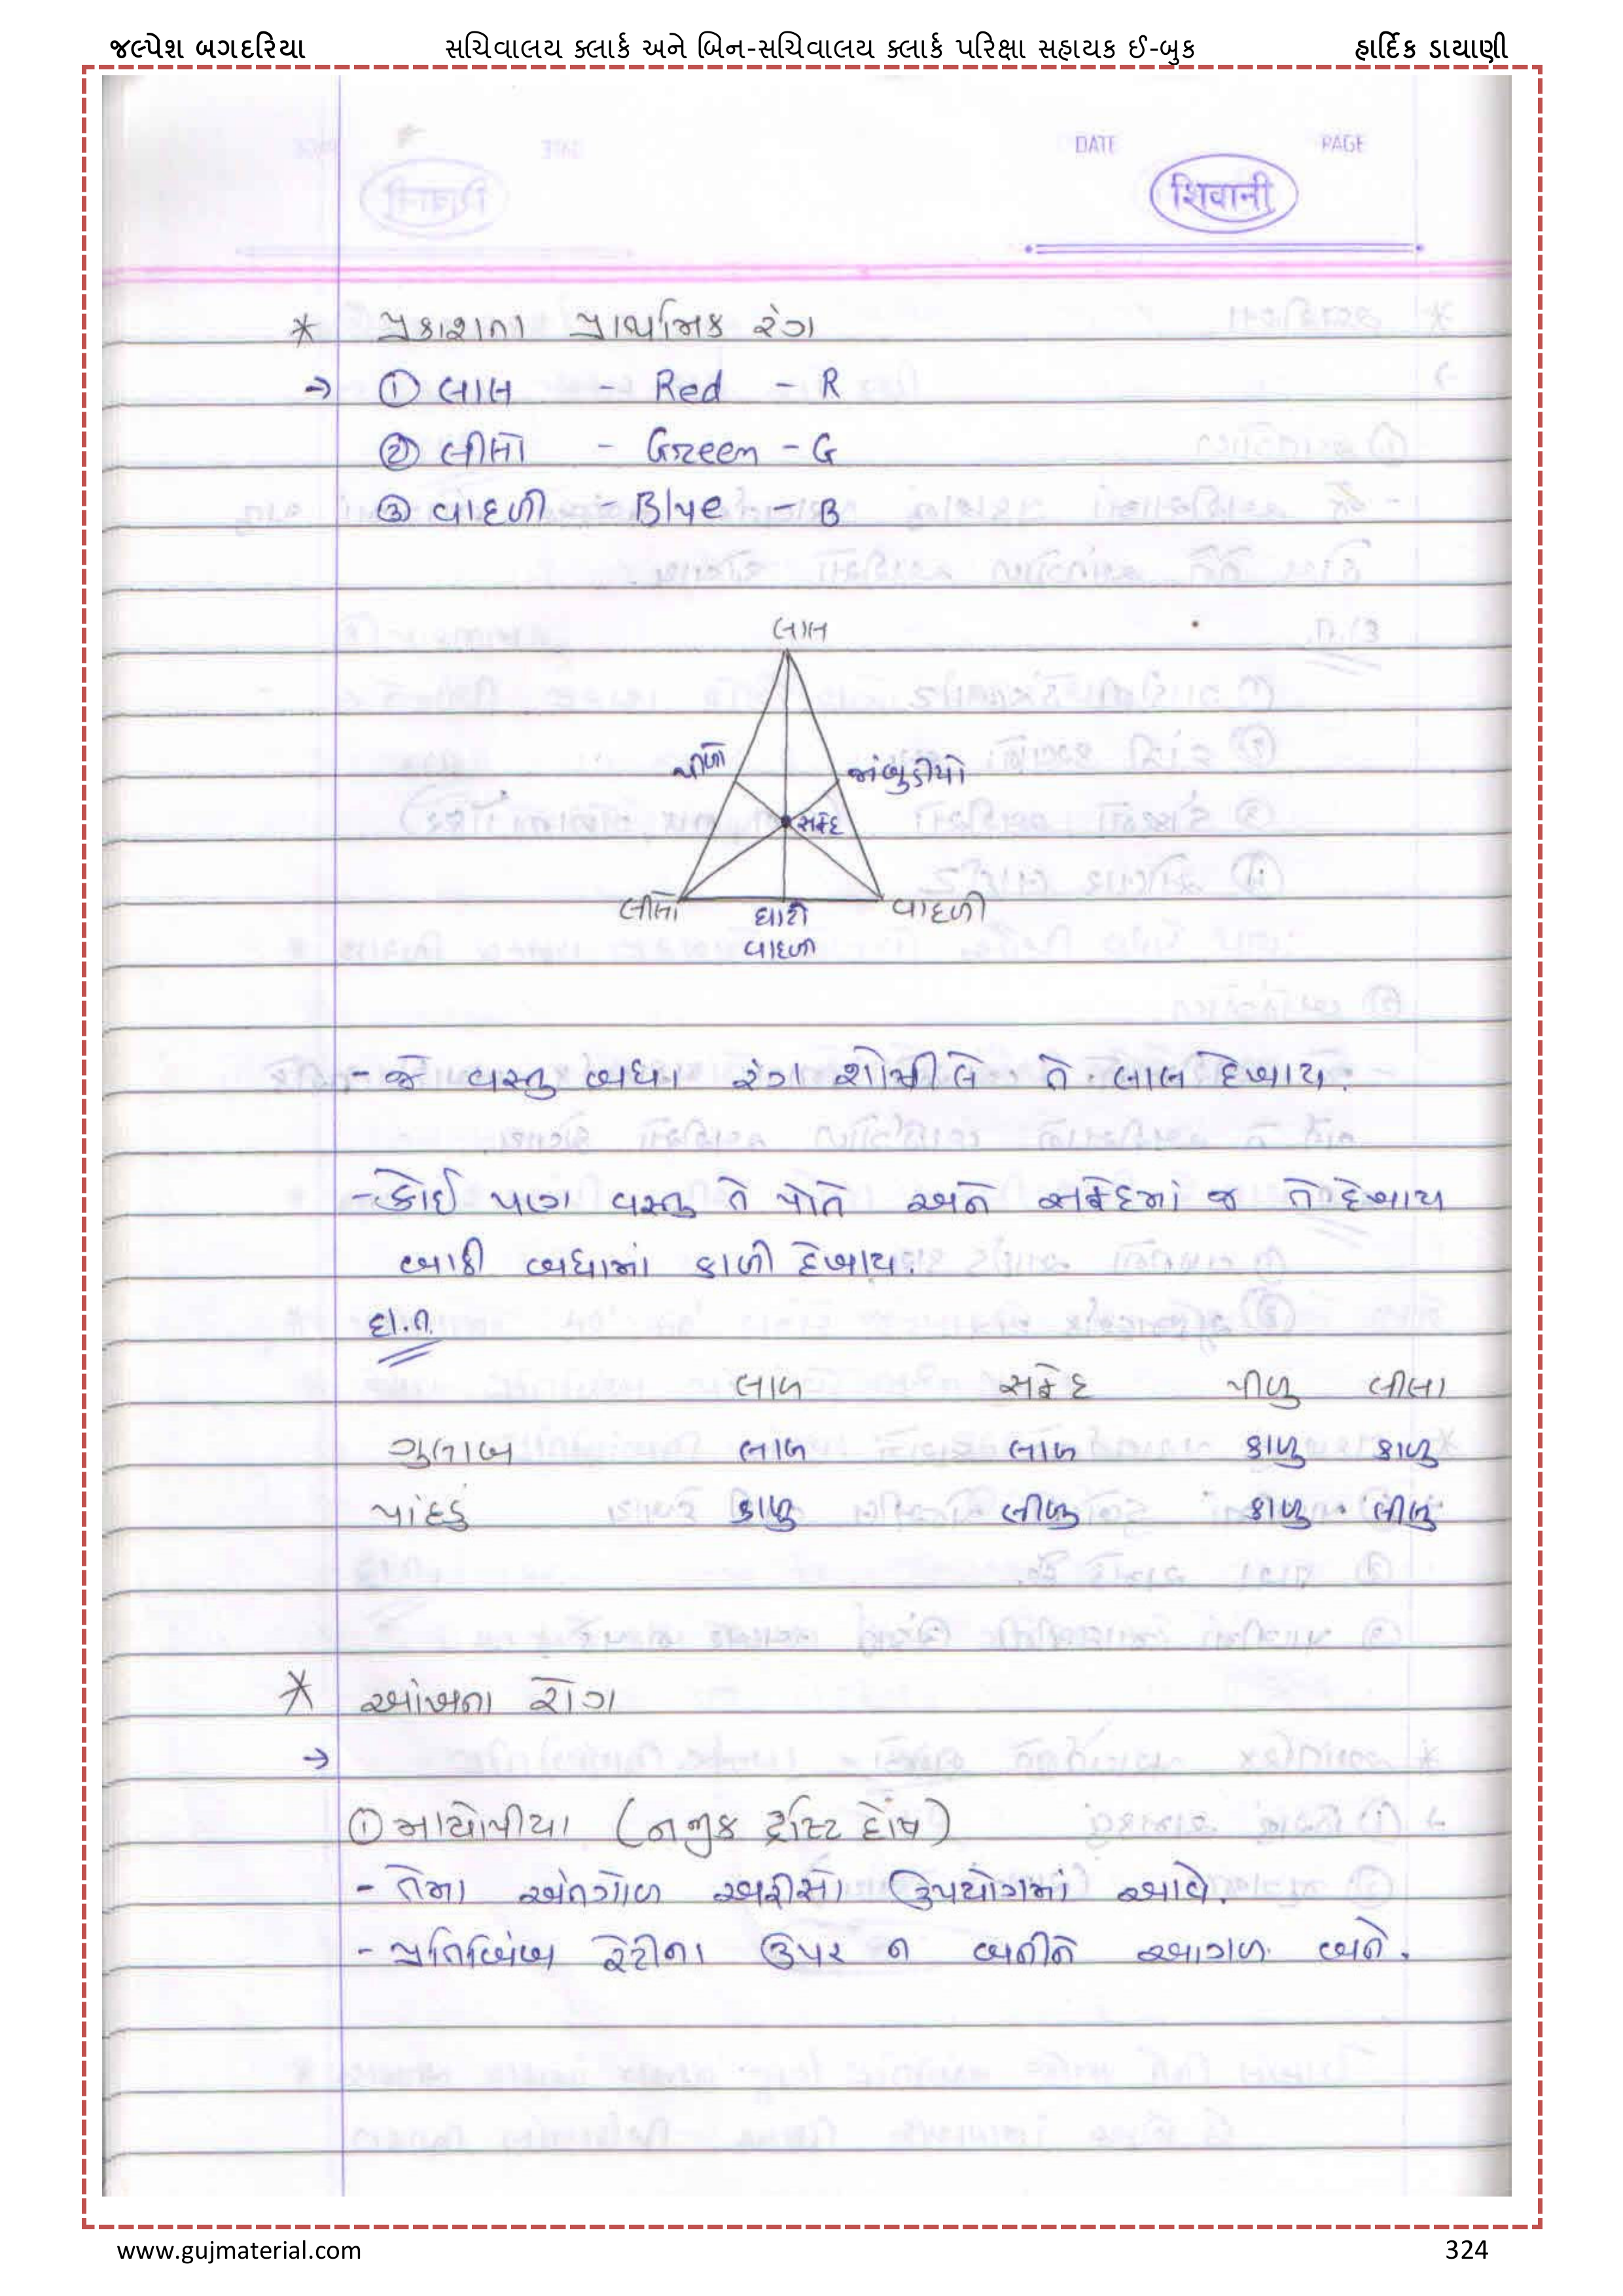 જલ્પેશ બગદરિયા સચિવાલય ક્લાર્ક અને બિન-સચિવાલય ક્લાર્ક પરિક્ષા સહાયક ઈ-બુક હાર્દિક ડાયાણી
DATE PAGE
शिवानी
* પ્રકાશના પ્રાથમિક રંગ
→ ① લાલ - Red - R
② લીલો - Green - G
③ વાદળી - Blue - B
લાલ
પીળો જાંબુડીયો
સફેદ
લીલો ઘાટો વાદળી
વાદળી
- જે વસ્તુ બધા રંગ શોષીલે તે લાલ દેખાય.
- કોઈ પણ વસ્તુ તે પોતે અને સફેદમાં જ તે દેખાય
બાકી બધામાં કાળી દેખાય.
દા.ત.
લાળ સફેદ પીળુ લીલા
ગુલાબ લાળ લાળ કાળુ કાળુ
પાંદડું કાળુ લીળુ કાળુ લીલું
* આંખના રોગ
→
① માયોપીયા (નજીક દ્રષ્ટિ દોષ)
- તેમા અંતગોળ અરીસો ઉપયોગમાં આવે.
- પ્રતિબિંબ રેટીના ઉપર ન બનીને આગળ બને.
www.gujmaterial.com 324